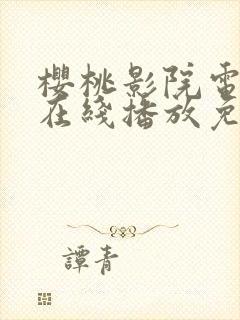 櫻桃影院電
在綫播放免
譚青